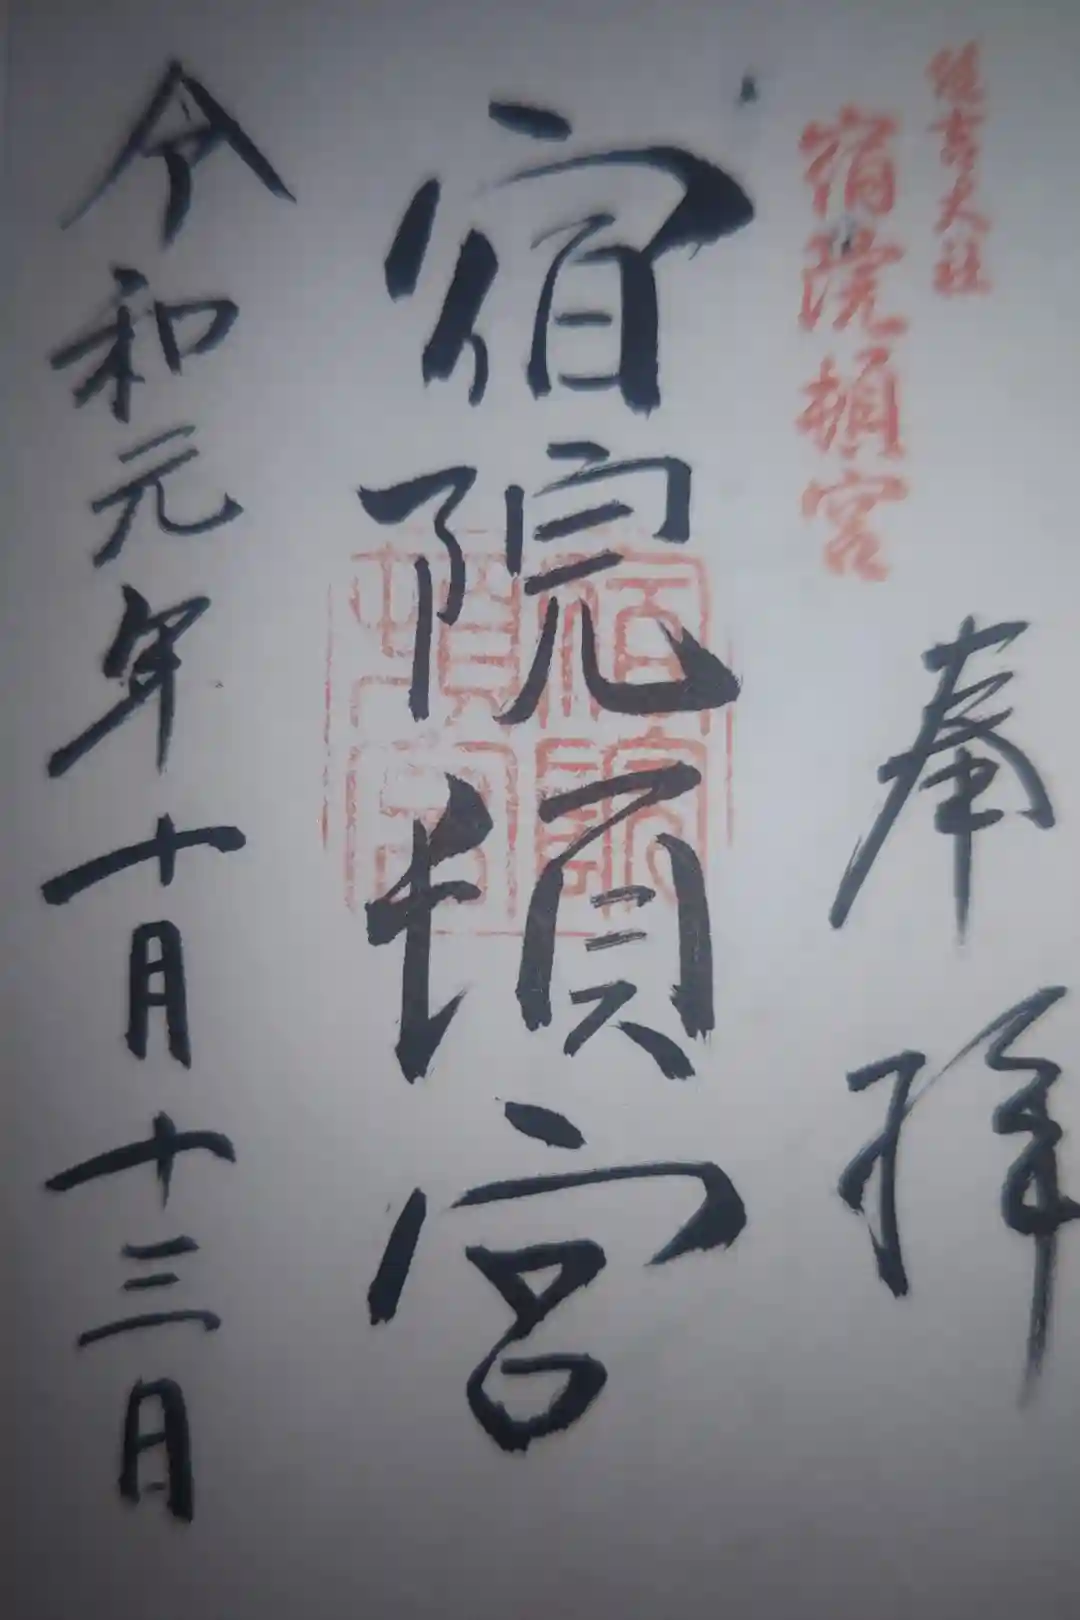 住吉大社
宿院頓宮
奉拜
宿院頓宮
宿院頓宮
令和元年十月十三日